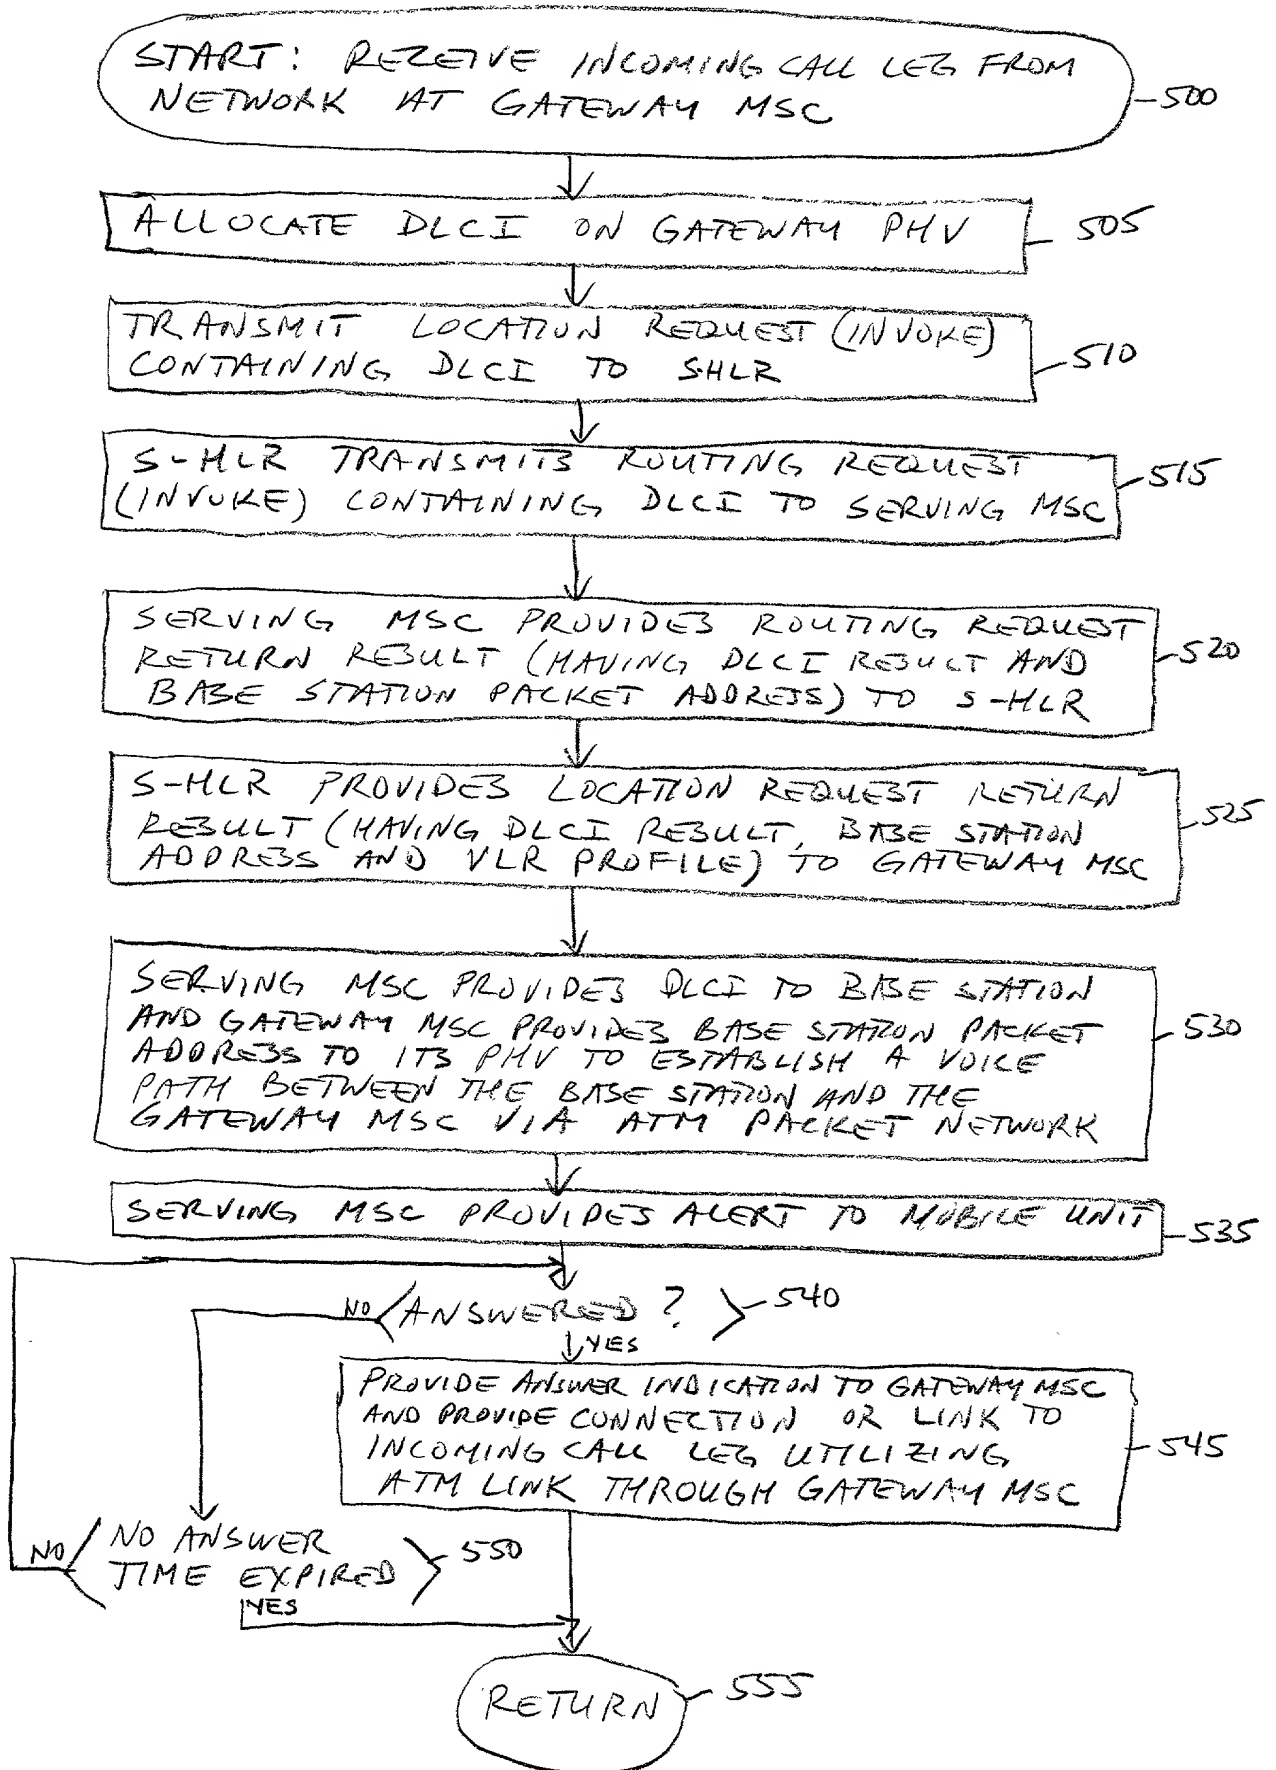 START: RECEIVE INCOMING CALL LEG FROM
NETWORK AT GATEWAY MSC
500
ALLOCATE DLCI ON GATEWAY PHV
505
TRANSMIT LOCATION REQUEST (INVOKE)
CONTAINING DLCI TO SHLR
510
S-HLR TRANSMITS ROUTING REQUEST
(INVOKE) CONTAINING DLCI TO SERVING MSC
515
SERVING MSC PROVIDES ROUTING REQUEST
RETURN RESULT (HAVING DLCI RESULT AND
BASE STATION PACKET ADDRESS) TO S-HLR
520
S-HLR PROVIDES LOCATION REQUEST RETURN
RESULT (HAVING DLCI RESULT, BASE STATION
ADDRESS AND VLR PROFILE) TO GATEWAY MSC
525
SERVING MSC PROVIDES DLCI TO BASE STATION
AND GATEWAY MSC PROVIDES BASE STATION PACKET
ADDRESS TO ITS PHV TO ESTABLISH A VOICE
PATH BETWEEN THE BASE STATION AND THE
GATEWAY MSC VIA ATM PACKET NETWORK
530
SERVING MSC PROVIDES ALERT TO MOBILE UNIT
535
NO
ANSWERED ?
540
YES
PROVIDE ANSWER INDICATION TO GATEWAY MSC
AND PROVIDE CONNECTION OR LINK TO
INCOMING CALL LEG UTILIZING
ATM LINK THROUGH GATEWAY MSC
545
NO
NO ANSWER
TIME EXPIRED
550
YES
RETURN
555